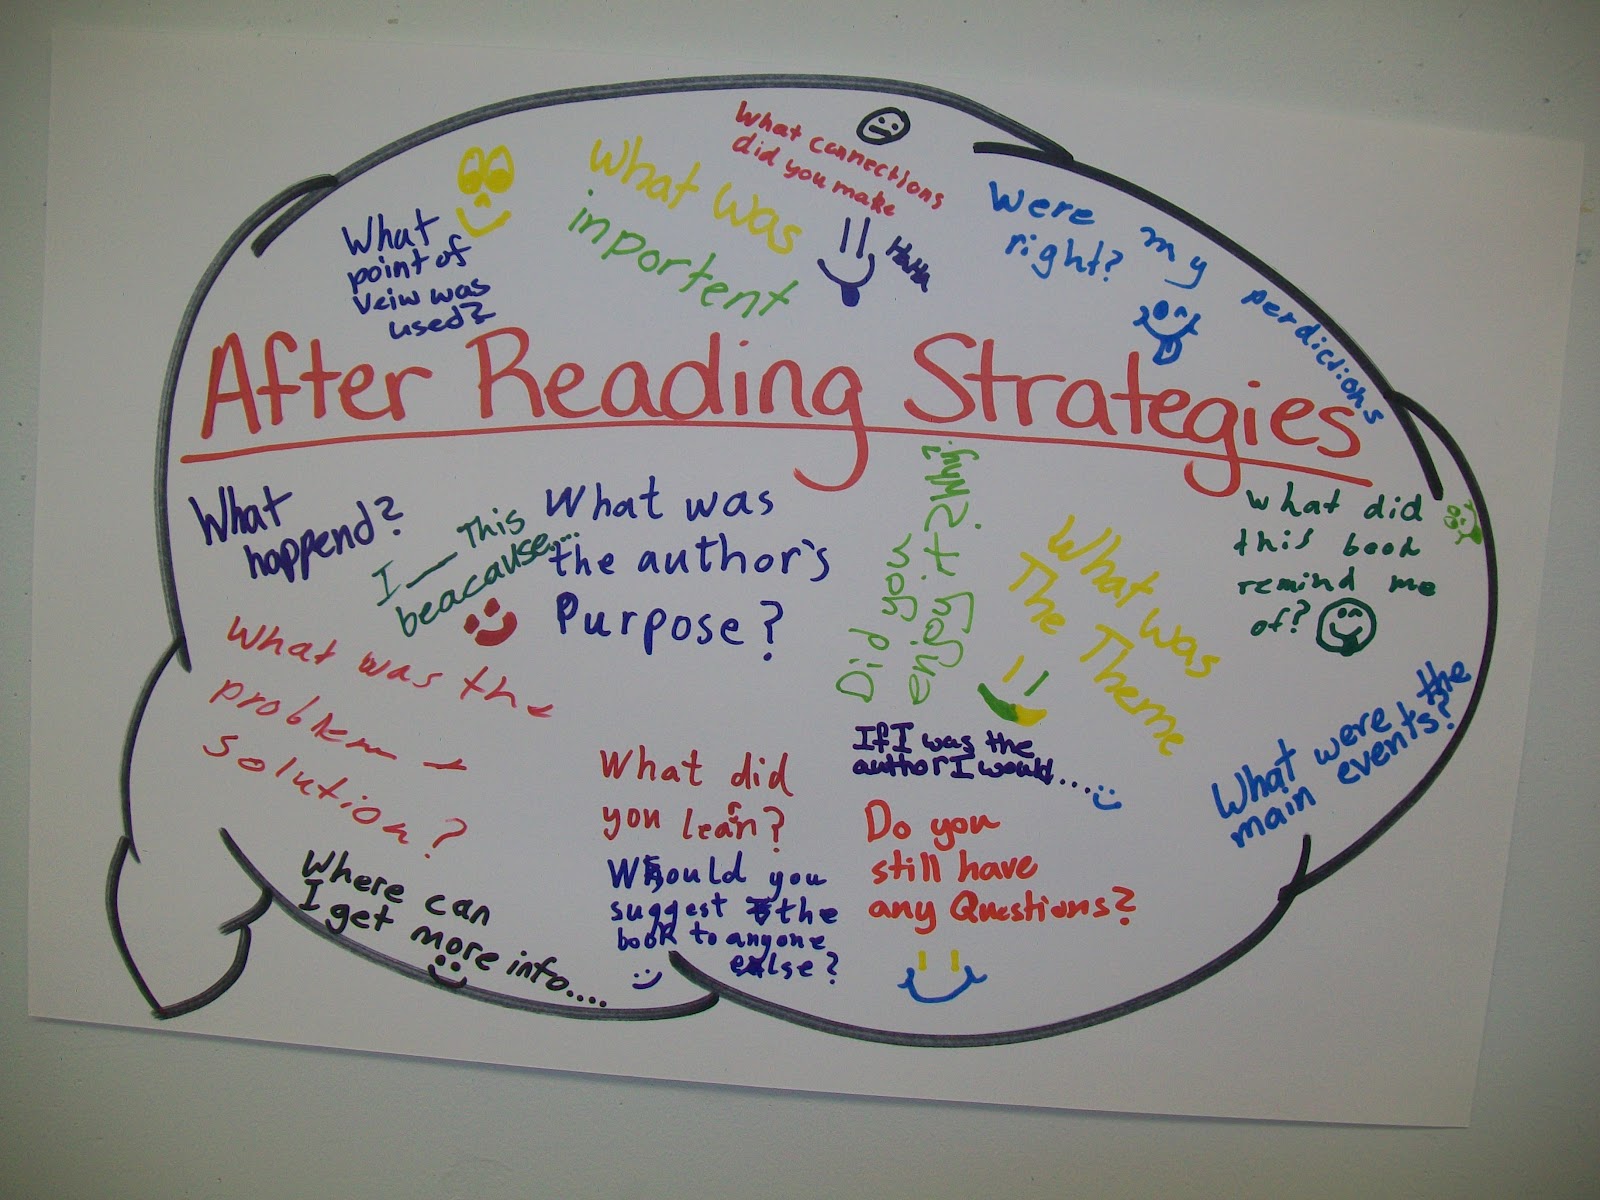 What connections
did you make
What was
inportent
What
point of
Veiw was
used?
HaHa
Were my perdictions
right?
After Reading Strategies
What
happend?
I ___ This
beacause...
What was
the author's
Purpose?
Did you
enjoy it? Why?
What was
The Theme
What did
this book
remind me
of?
What was the
problem +
solution?
If I was the
author I would....
What were the
main events?
What did
you learn?
Do you
still have
any Questions?
Where can
I get more info....
Would you
suggest the
book to anyone
else?